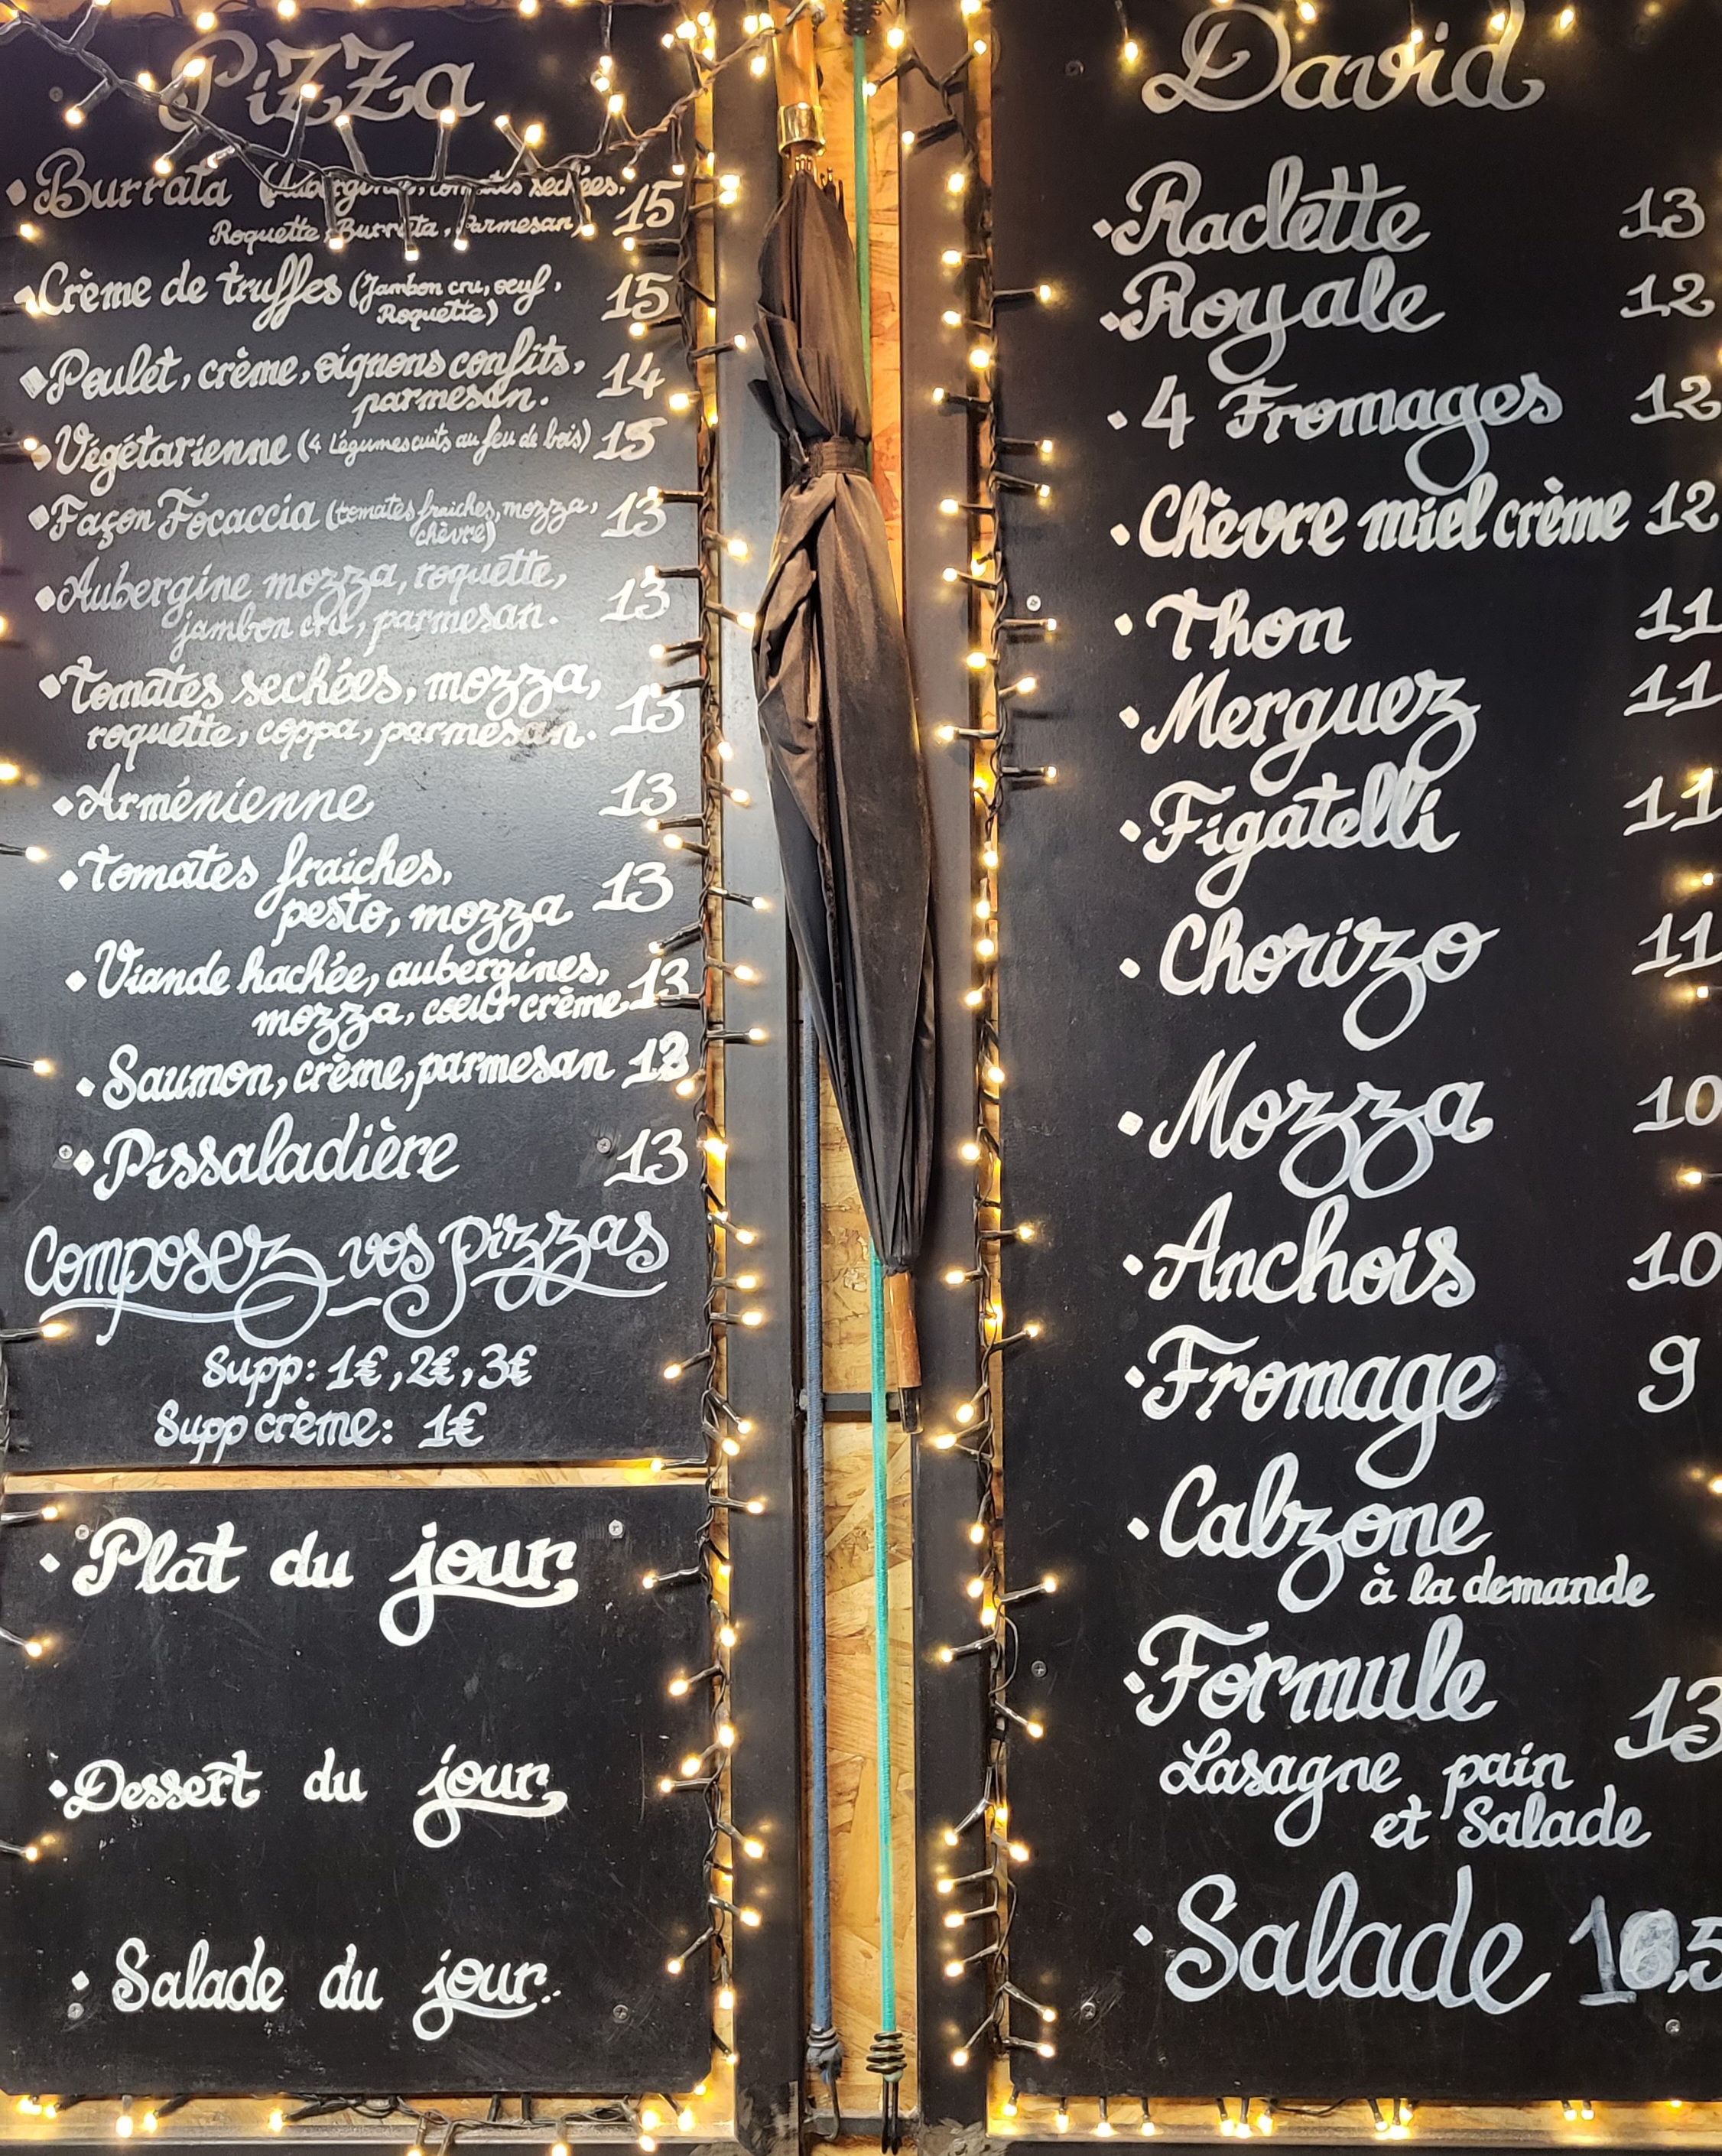 Pizza
Burrata (Aubergines, tomates sechées, 15
Roquette, Burrata, Parmesan)
Crème de truffes (Jambon cru, oeuf, 15
Roquette)
Poulet, crème, oignons confits, 14
parmesan.
Végétarienne (4 Légumes cuits au feu de bois)
Façon Focaccia (tomates fraiches, mozza, 13
chèvre)
Aubergine mozza, roquette, 13
jambon cru, parmesan.
Tomates sechées, mozza, 13
roquette, coppa, parmesan.
Arménienne 13
Tomates fraiches, 13
pesto, mozza
Viande hachée, aubergines, 13
mozza, cœur crème
Saumon, crème, parmesan
Pissaladière 13
Composez vos pizzas
Supp: 1€, 2€, 3€
Supp crème: 1€
Plat du jour
Dessert du jour
Salade du jour
David
Raclette 13
Royale 12
4 Fromages 12
Chèvre miel crème 12
Thon 11
Merguez 11
Figatelli 11
Chorizo 11
Mozza 10
Anchois 10
Fromage 9
Calzone
à la demande
Formule 13
Lasagne pain
et Salade
Salade